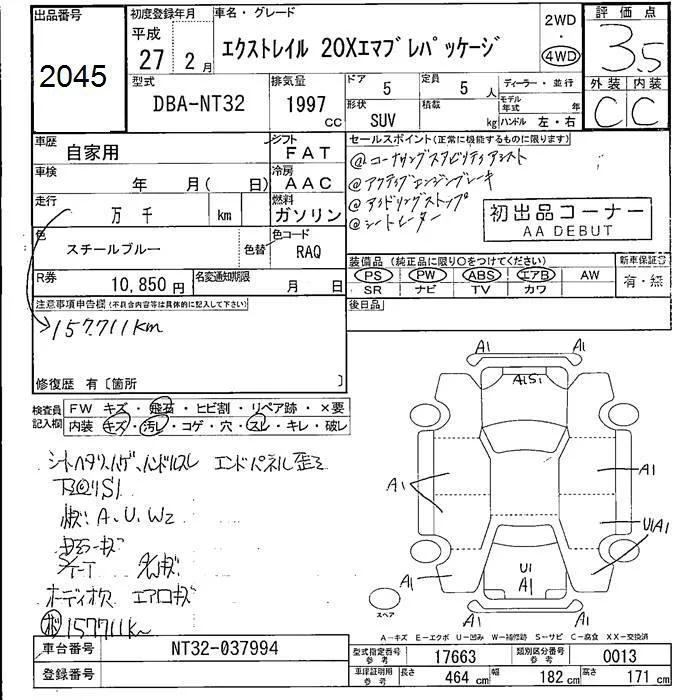 出品番号
2045
初度登録年月
平成
27 2月
車名・グレード
エクストレイル 20Xエマブレパッケージ
2WD
・
4WD
評価点
3.5
外装 内装
C C
型式
DBA-NT32
排気量
1997 CC
ドア 5
定員 5 人
形状 SUV
積載 kg
ディーラー・並行
モデル年式 年
ハンドル 左・右
車歴
自家用
シフト
FAT
車検
年 月( 日)
冷房
AAC
走行
万 千 km
燃料
ガソリン
色
スチールブルー
色替
色コード
RAQ
R券
10,850円
名変通知期限
月 日
セールスポイント(正常に機能するものに限ります)
@コーナリングスタビリティアシスト
@アクティブエンジンブレーキ
@アイドリングストップ
@シートヒーター
初出品コーナー
AA DEBUT
装備品(純正品に限り○をつけてください)
PS PW ABS エアB AW
SR ナビ TV カワ
新車保証書
有・無
後日品
注意事項申告欄(不具合内容等は具体的に記入して下さい)
157,711km
修復歴 有〔箇所 〕
検査員記入欄
FW キズ・飛石・ヒビ割・リペア跡・×要
内装 キズ・汚レ・コゲ・穴・スレ・キレ・破レ
シートヘタリ、ハゲ、ハンドルスレ エンドパネル歪ミ
S1
A、U、W2
キズ
エアロキズ
157711km
A1 A1
A1S1
A1 A1
U1A1
U1
A1
A1 A1
A1 A1
スペア
A-キズ E-エクボ U-凹み W-補修跡 S-サビ C-腐食 XX-交換済
車台番号
NT32-037994
登録番号
型式指定番号 参考
17663
類別区分番号 参考
0013
車庫証明用 参考
長さ 464 cm
幅 182 cm
高さ 171 cm